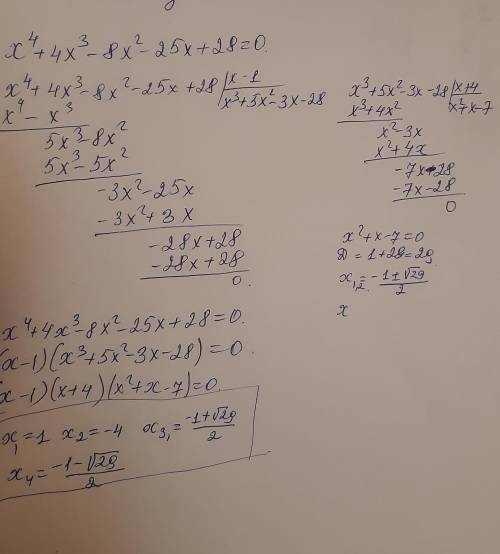 x⁴+4x³-8x²-25x+28=0.
x⁴+4x³-8x²-25x+28 | x-1
x⁴-x³ | x³+5x²-3x-28
5x³-8x²
5x³-5x²
-3x²-25x
-3x²+3x
-28x+28
-28x+28
0.
x³+5x²-3x-28 | x+4
x³+4x² | x²+x-7
x²-3x
x²+4x
-7x-28
-7x-28
0
x²+x-7=0
D=1+28=29
x₁,₂=(-1±√29)/2
x
x⁴+4x³-8x²-25x+28=0.
(x-1)(x³+5x²-3x-28)=0.
(x-1)(x+4)(x²+x-7)=0.
x₁=1 x₂=-4 x₃,=(-1+√29)/2
x₄=(-1-√29)/2